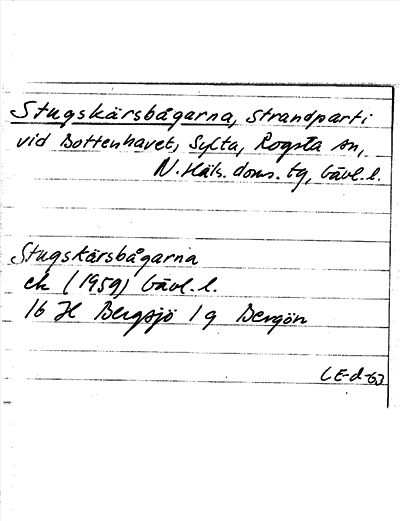 Stugskärsbågarna, strandparti
vid Bottenhavet, Sylta, Rogsta sn,
N. Häls. doms. tg, Gävl. l.
Stugskärsbågarna
ek (1959) Gävl. l.
16 H Bergsjö 1 g Bergön
LE-d-63